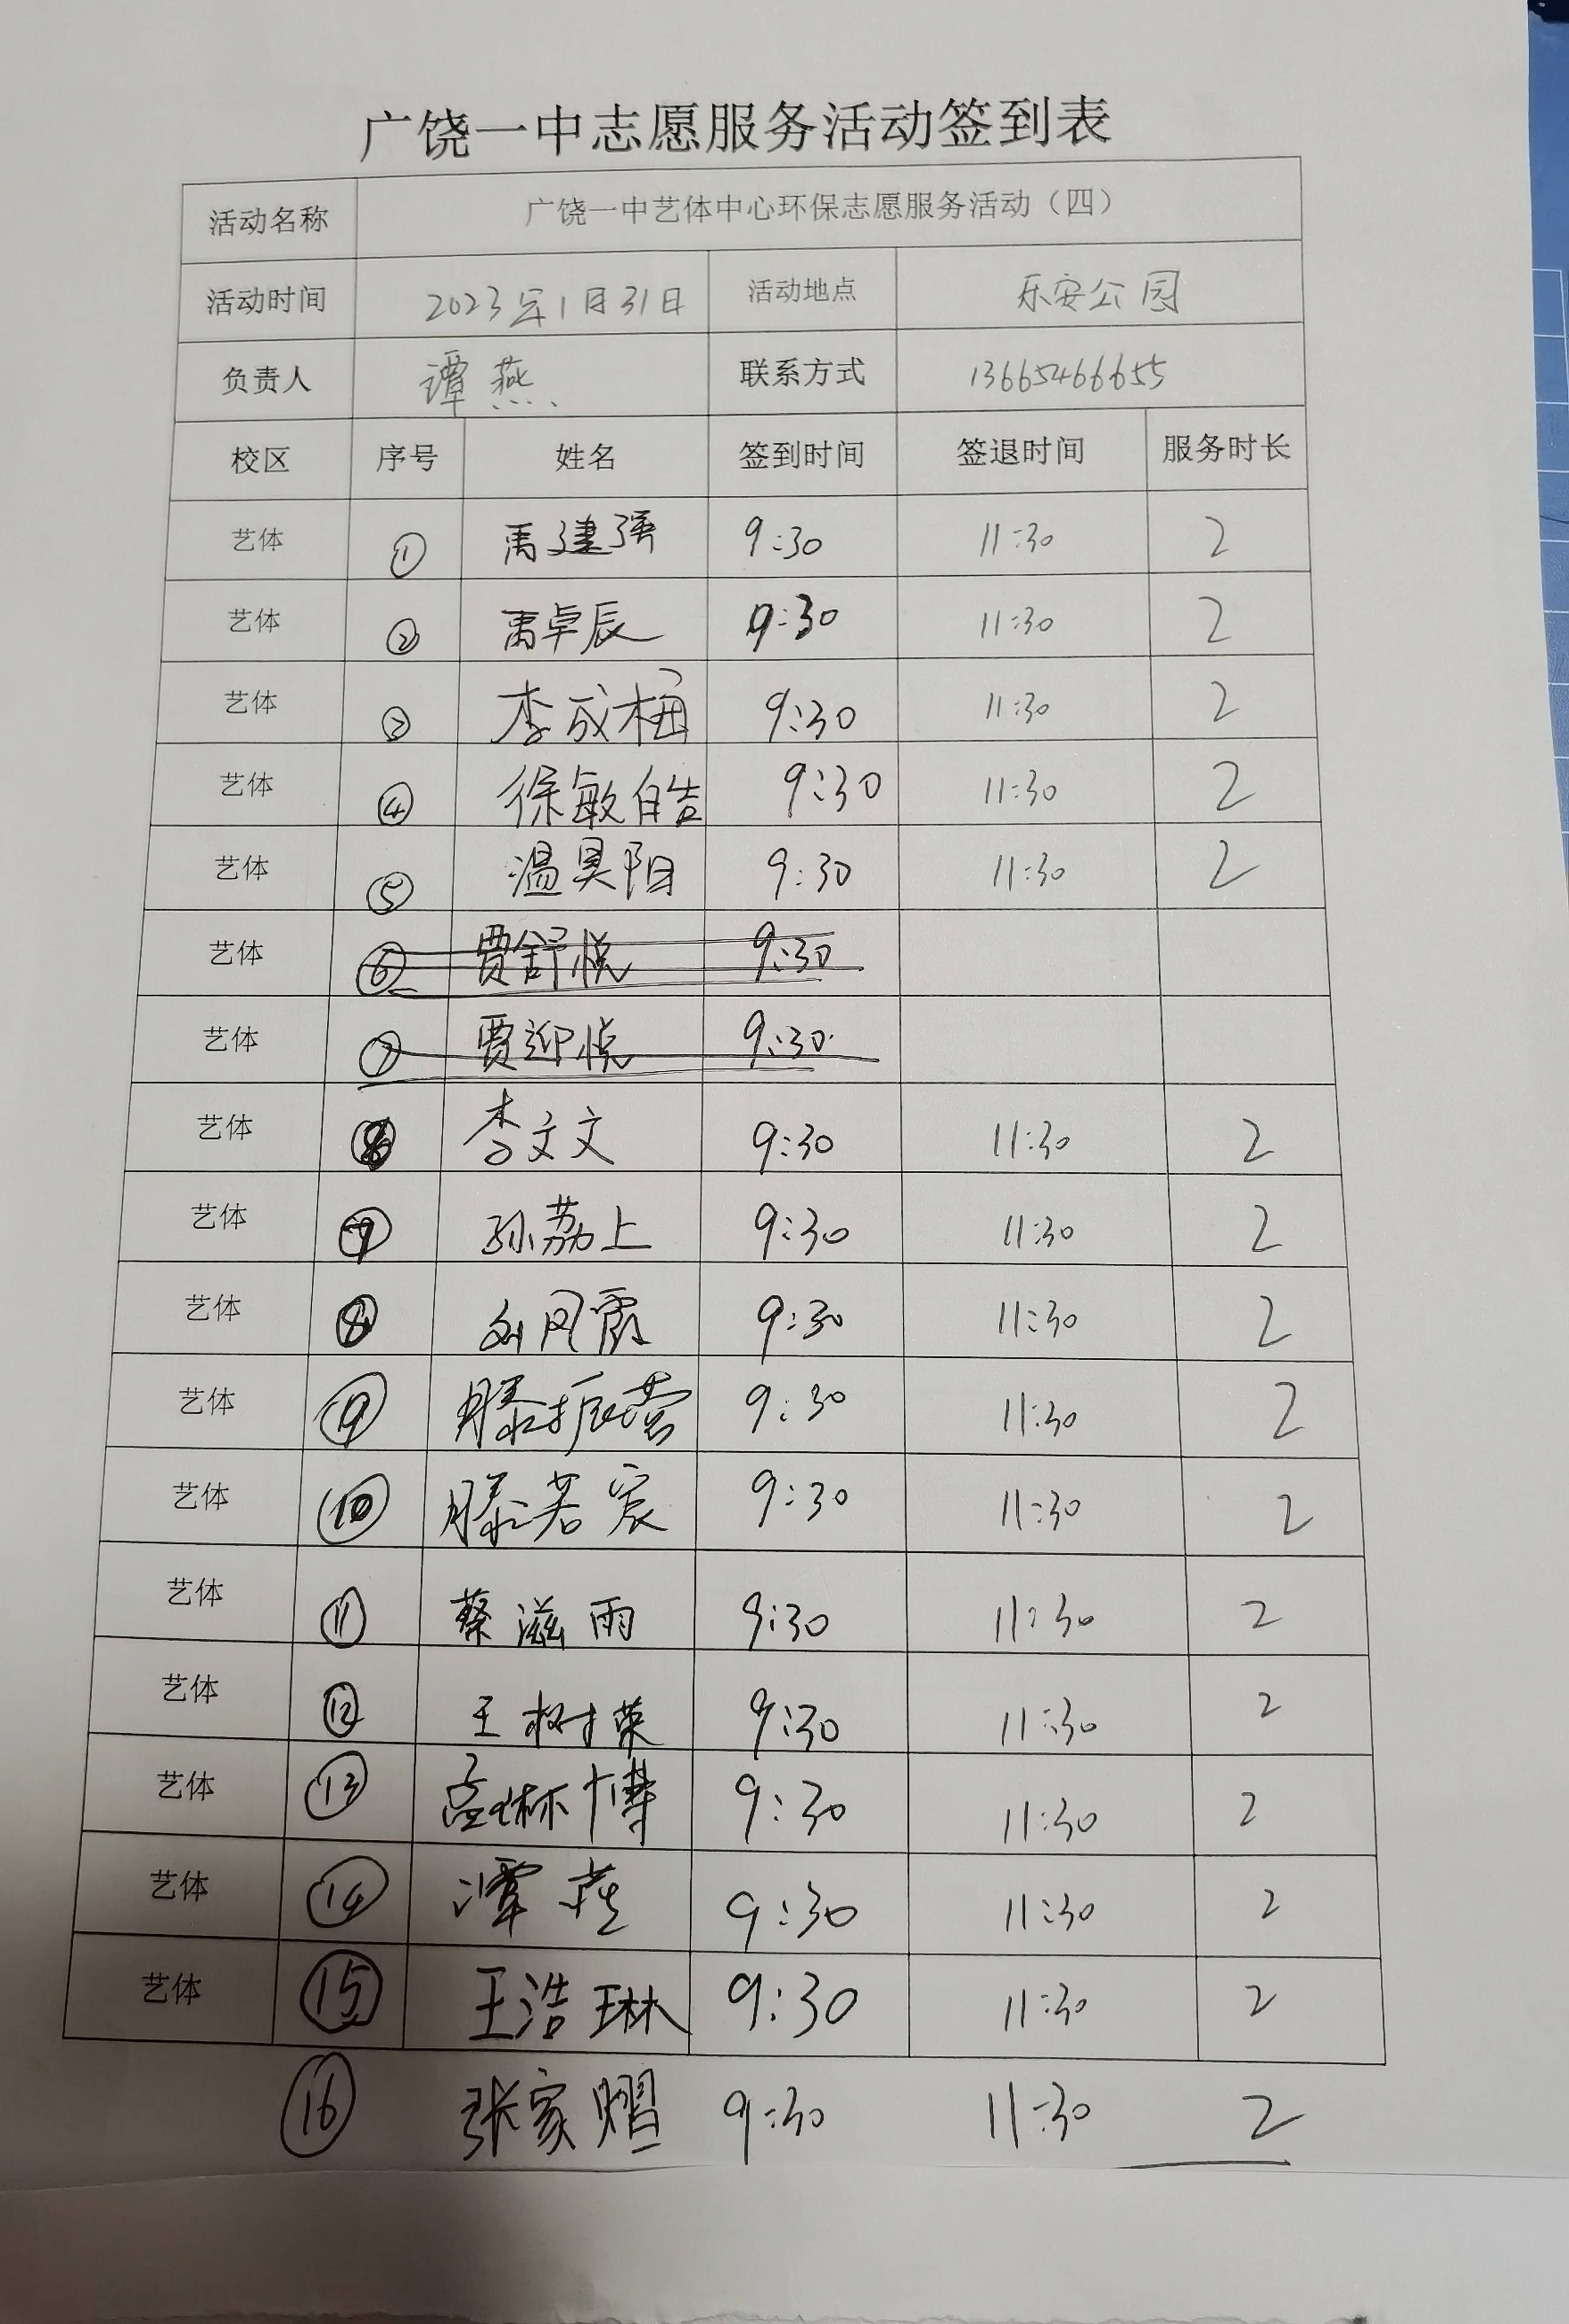 广饶一中志愿服务活动签到表
活动名称 广饶一中艺体中心环保志愿服务活动（四）
活动时间 2023年1月31日 活动地点 乐安公园
负责人 谭燕 联系方式 13665466655
校区 序号 姓名 签到时间 签退时间 服务时长
艺体 ① 禹建强 9:30 11:30 2
艺体 ② 禹卓辰 9:30 11:30 2
艺体 ③ 李成梅 9:30 11:30 2
艺体 ④ 徐敏皓 9:30 11:30 2
艺体 ⑤ 温昊阳 9:30 11:30 2
艺体 ⑥ 贾舒悦 9:30
艺体 ⑦ 贾迎悦 9:30
艺体 李文文 9:30 11:30 2
艺体 ⑦ 孙荔上 9:30 11:30 2
艺体 ⑧ 刘风霞 9:30 11:30 2
艺体 ⑨ 滕振营 9:30 11:30 2
艺体 ⑩ 滕若宸 9:30 11:30 2
艺体 ⑪ 蔡滋雨 9:30 11:30 2
艺体 ⑫ 王树荣 9:30 11:30 2
艺体 ⑬ 孟琳博 9:30 11:30 2
艺体 ⑭ 谭燕 9:30 11:30 2
艺体 ⑮ 王浩琳 9:30 11:30 2
⑯ 张家熠 9:30 11:30 2